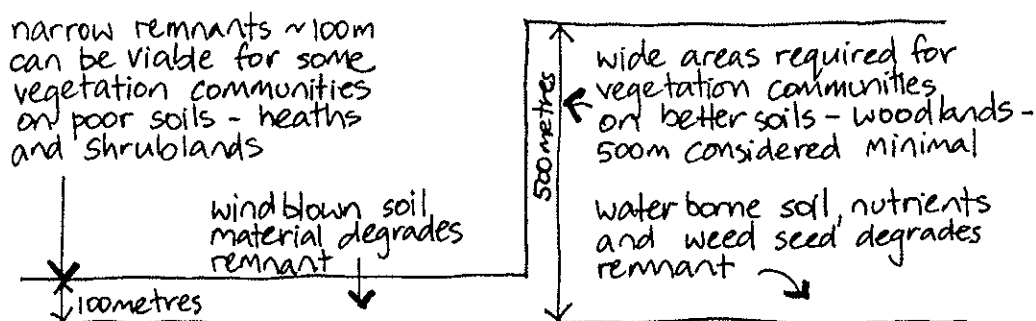 narrow remnants ~100m
can be viable for some
vegetation communities
on poor soils - heaths
and shrublands
windblown soil
material degrades
remnant
100metres
500metres
wide areas required for
vegetation communities
on better soils - woodlands -
500m considered minimal
water borne soil, nutrients
and weed seed degrades
remnant